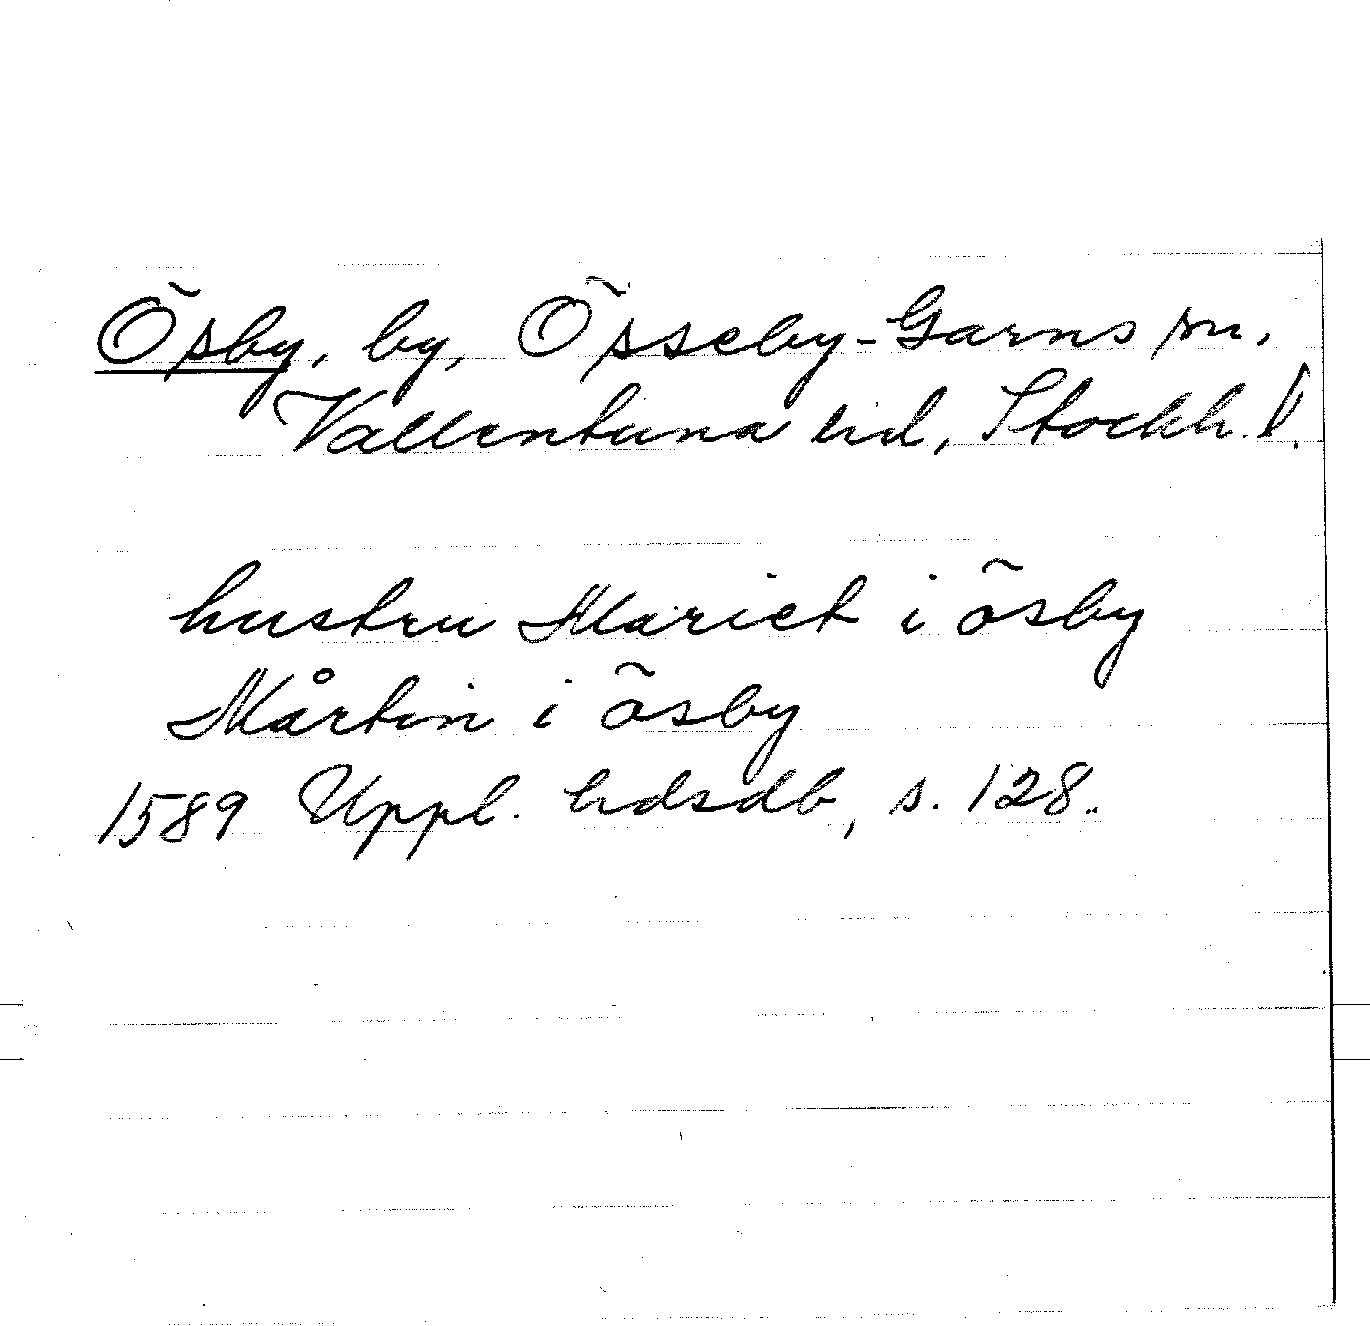 Ösby, by, Össeby-Garns sn,
Vallentuna hd, Stockh. l.
hustru Mariet i ösby
Mårtin i ösby
1589 Uppl. hdsdb, s. 128.